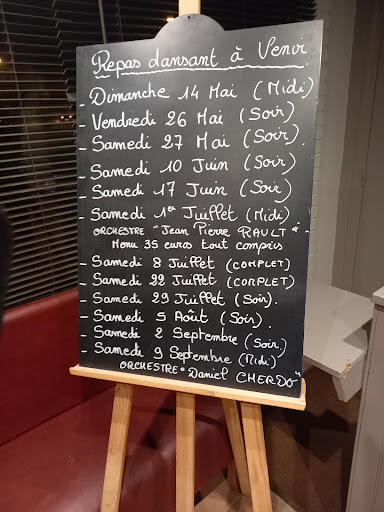 Repas dansant à Venir
- Dimanche 14 Mai (Midi)
- Vendredi 26 Mai (Soir)
- Samedi 27 Mai (Soir)
- Samedi 10 Juin (Soir)
- Samedi 17 Juin (Soir)
- Samedi 1er Juillet (Midi)
ORCHESTRE "Jean Pierre RAULT"
Menu 35 euros tout compris
- Samedi 8 Juillet (COMPLET)
- Samedi 22 Juillet (COMPLET)
- Samedi 29 Juillet (Soir).
- Samedi 5 Août (Soir).
- Samedi 2 Septembre (Soir)
- Samedi 9 Septembre (Midi)
ORCHESTRE "Daniel CHERDO"